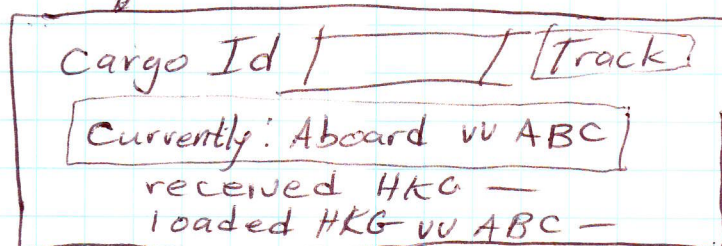 Cargo Id Track
Currently: Aboard vv ABC
received HKG —
loaded HKG vv ABC —